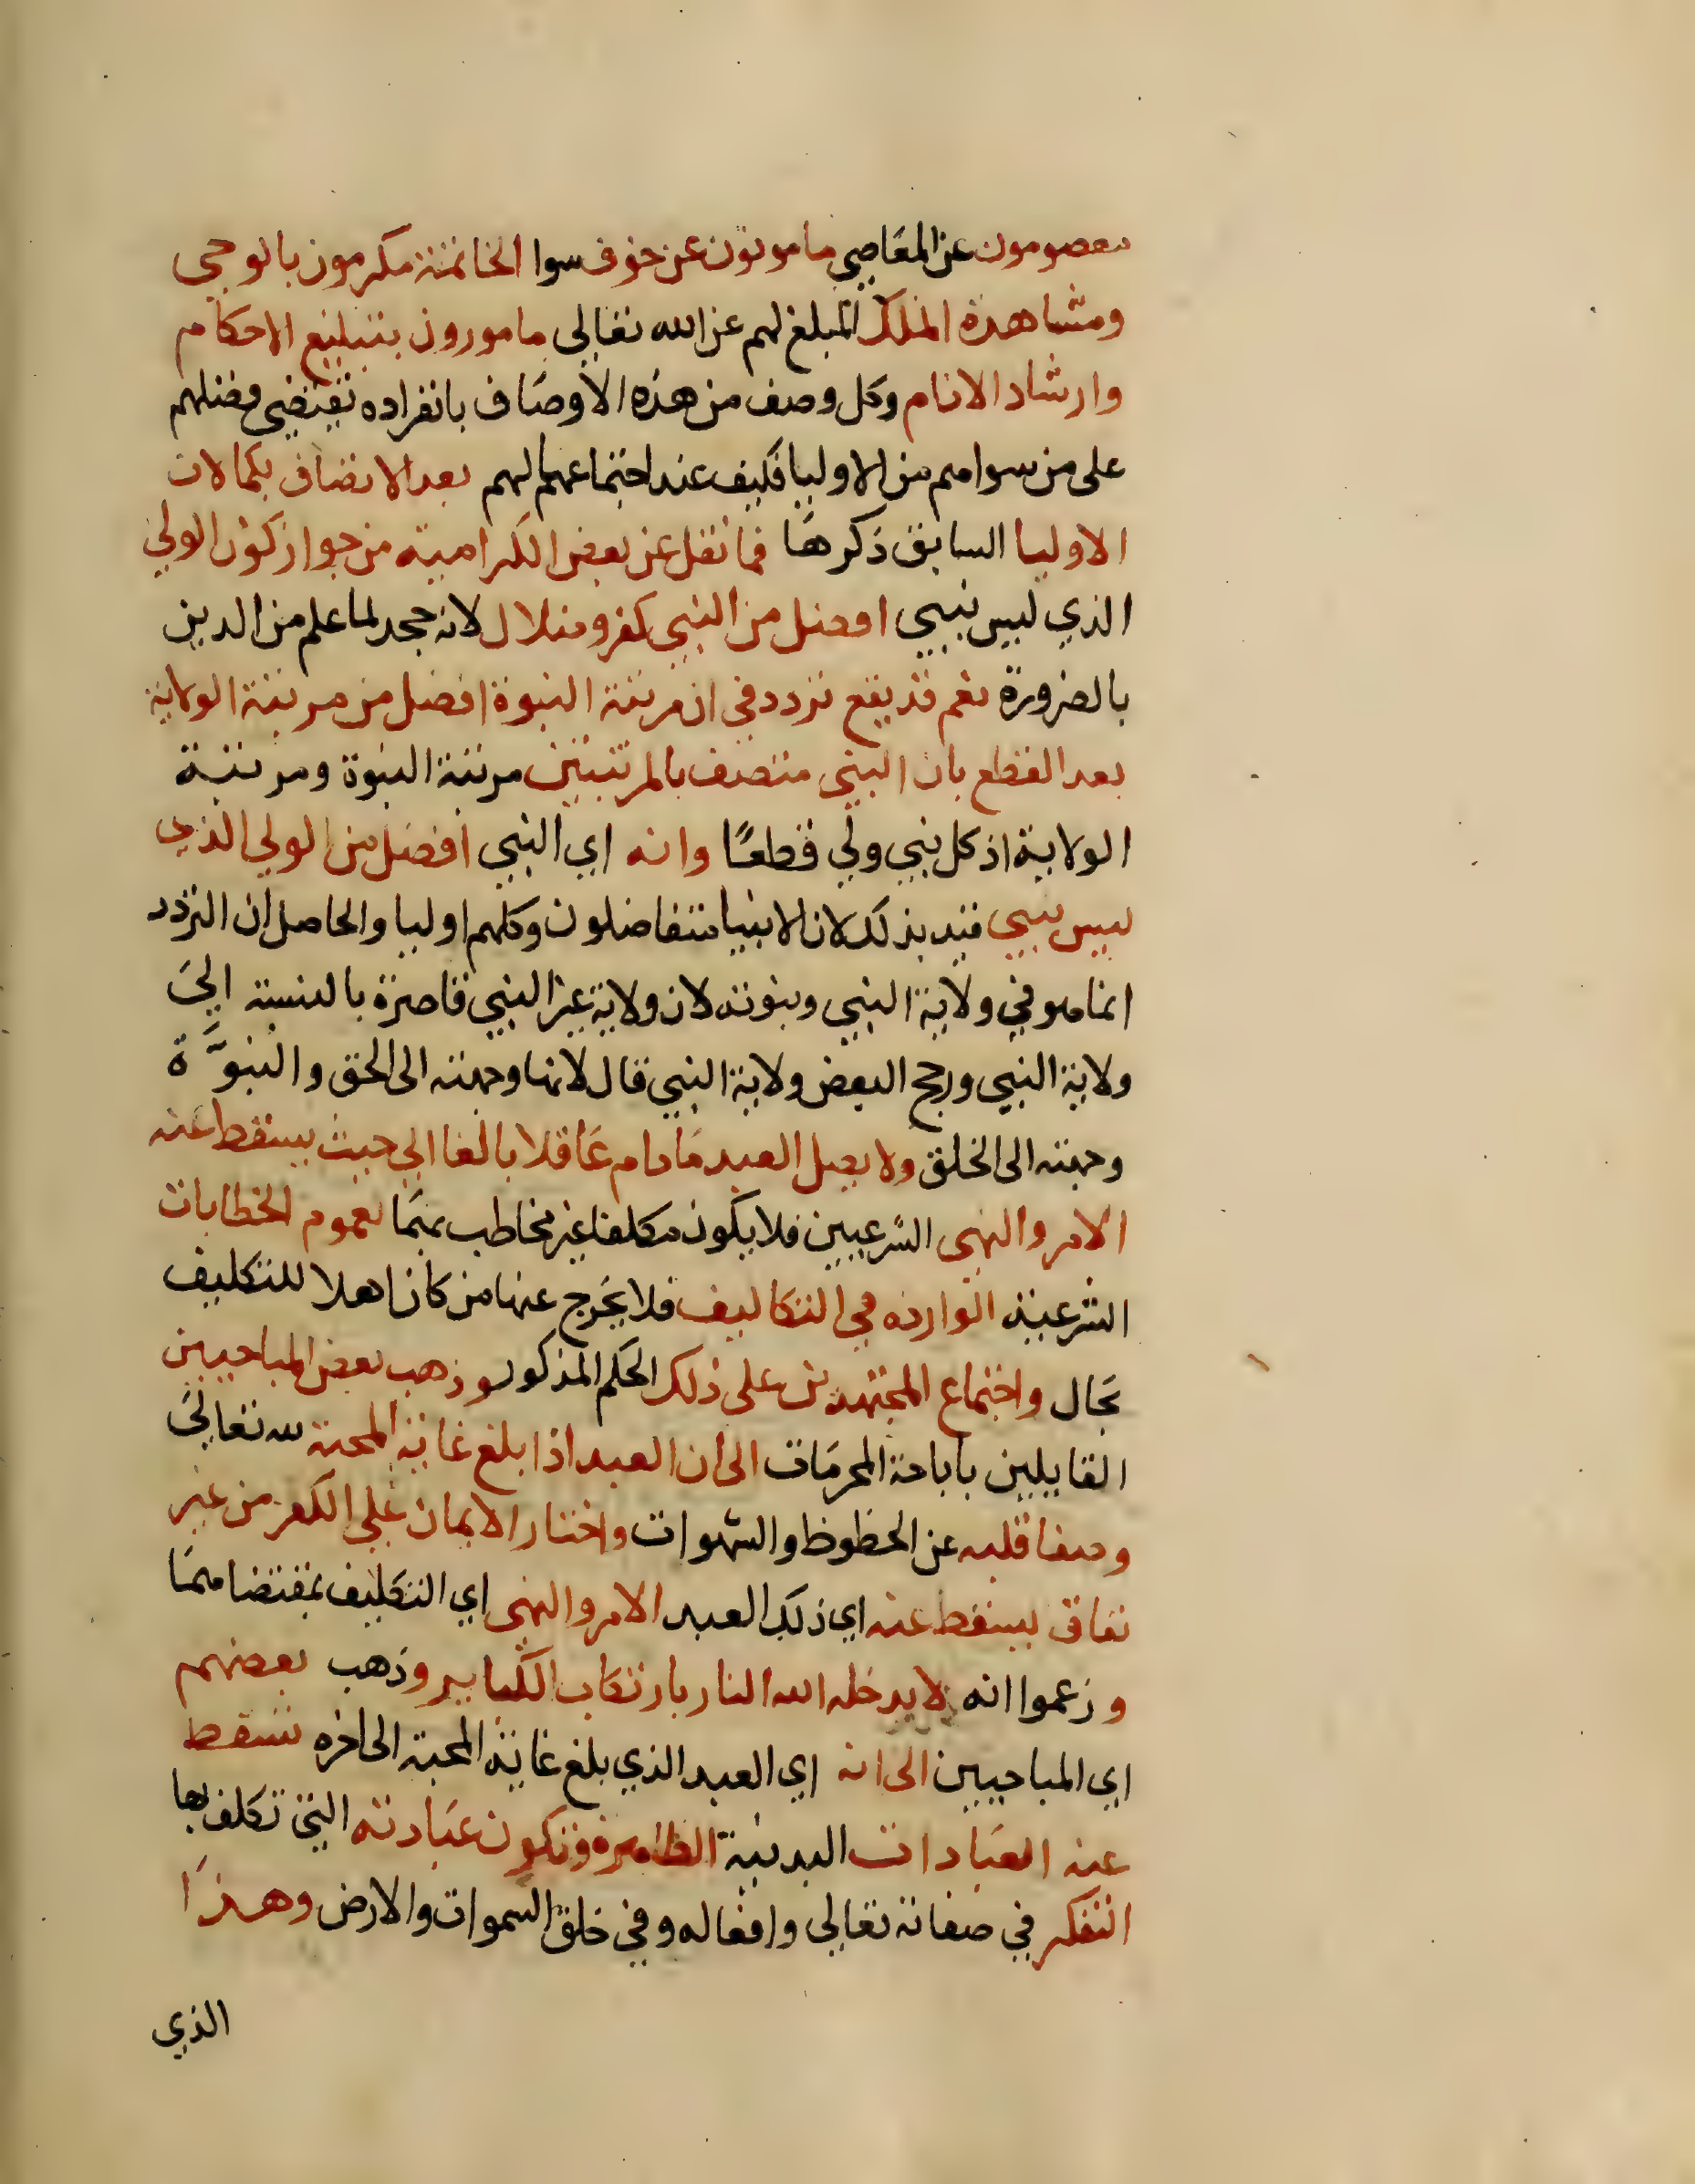 معصومون عن المعاصي مامونون عن خوف سوا الخاتمة مكرمون بالوحي
ومشاهدة الملك المبلغ لهم عن الله تعالى مامورون بتبليغ الاحكام
وارشاد الانام وكل وصف من هذه الأوصاف بانفراده تقتضي فضلهم
على من سواهم من الاوليا فكيف عند اجتماعهم لهم بعد الاتصاف بكمالات
الاوليا السابق ذكرها فما نقل عن بعض الكرامية من جواز كون الولي
الذي ليس بنبي افضل من النبي كفر وضلال لانه جحد لما علم من الدين
بالضرورة نعم قد يقع تردد في ان مرتبة النبوة افضل من مرتبة الولاية
بعد القطع بان النبي متصف بالمرتبتين مرتبة النبوة ومرتبة
الولاية اذ كل نبي ولي قطعًا وانه اي النبي افضل من الولي الذي
ليس بنبي قيد بذلك لان الانبيا متفاضلون وكلهم اوليا والحاصل ان التردد
انما هو في ولاية النبي ونبوته لان ولاية غير النبي قاصرة بالنسبة الى
ولاية النبي ورجح البعض ولاية النبي قال لانها وجهته الى الحق والنبوَّة
وجهته الى الخلق ولا يصل العبد مَادام عَاقلا بالغا الى حيث يسقط عنه
الامر والنهي الشرعيين فلا يكون مكلفا غير مخاطب بهمَا لعموم الخطابات
الشرعية الوارده في التكاليف فلا يخرج عنها من كان اهلا للتكليف
بحال واجتماع المجتهدين على ذلك الحكم المذكور وذهب بعض المباحيين
القايلين باباحة المحرمَات الى ان العبد اذا بلغ غاية المحبة لله تعالىَ
وصفا قلبه عن الحظوظ والشهوات واختار الايمان على الكفر من غير
نفاق يسقط عنه اي ذلك العبد الامر والنهي اي التكليف بمقتضاهمَا
وزعموا انه لا يدخله الله النار بارتكاب الكباير وذهب بعضهم
اي المباحيين الى انه اي العبد الذي بلغ غاية المحبة الى اخره تسقط
عنه العبادات البدنية الظاهرة وتكون عبَادته التي تكلف بها
التفكر في صفاته تعالى وافعاله وفي خلق السموات والارض وهذَا
الذي